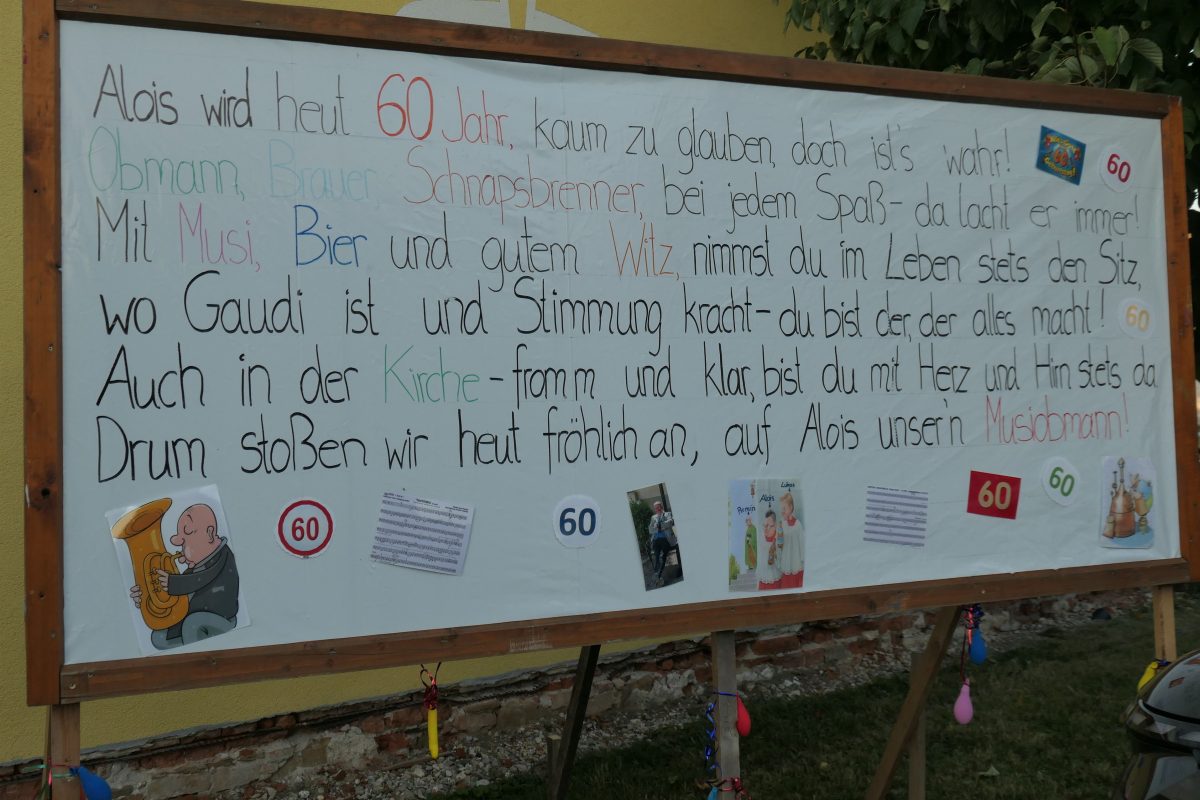 Alois wird heut 60 Jahr, kaum zu glauben, doch ist's wahr!
Obmann, Brauer, Schnapsbrenner, bei jedem Spaß - da lacht er immer!
Mit Musi, Bier und gutem Witz, nimmst du im Leben stets den Sitz,
wo Gaudi ist und Stimmung kracht - du bist der, der alles macht!
Auch in der Kirche - fromm und klar, bist du mit Herz und Hirn stets da
Drum stoßen wir heut fröhlich an, auf Alois unser'n Musiobmann!
60
60
60
60
60
60
Alois
Lukas